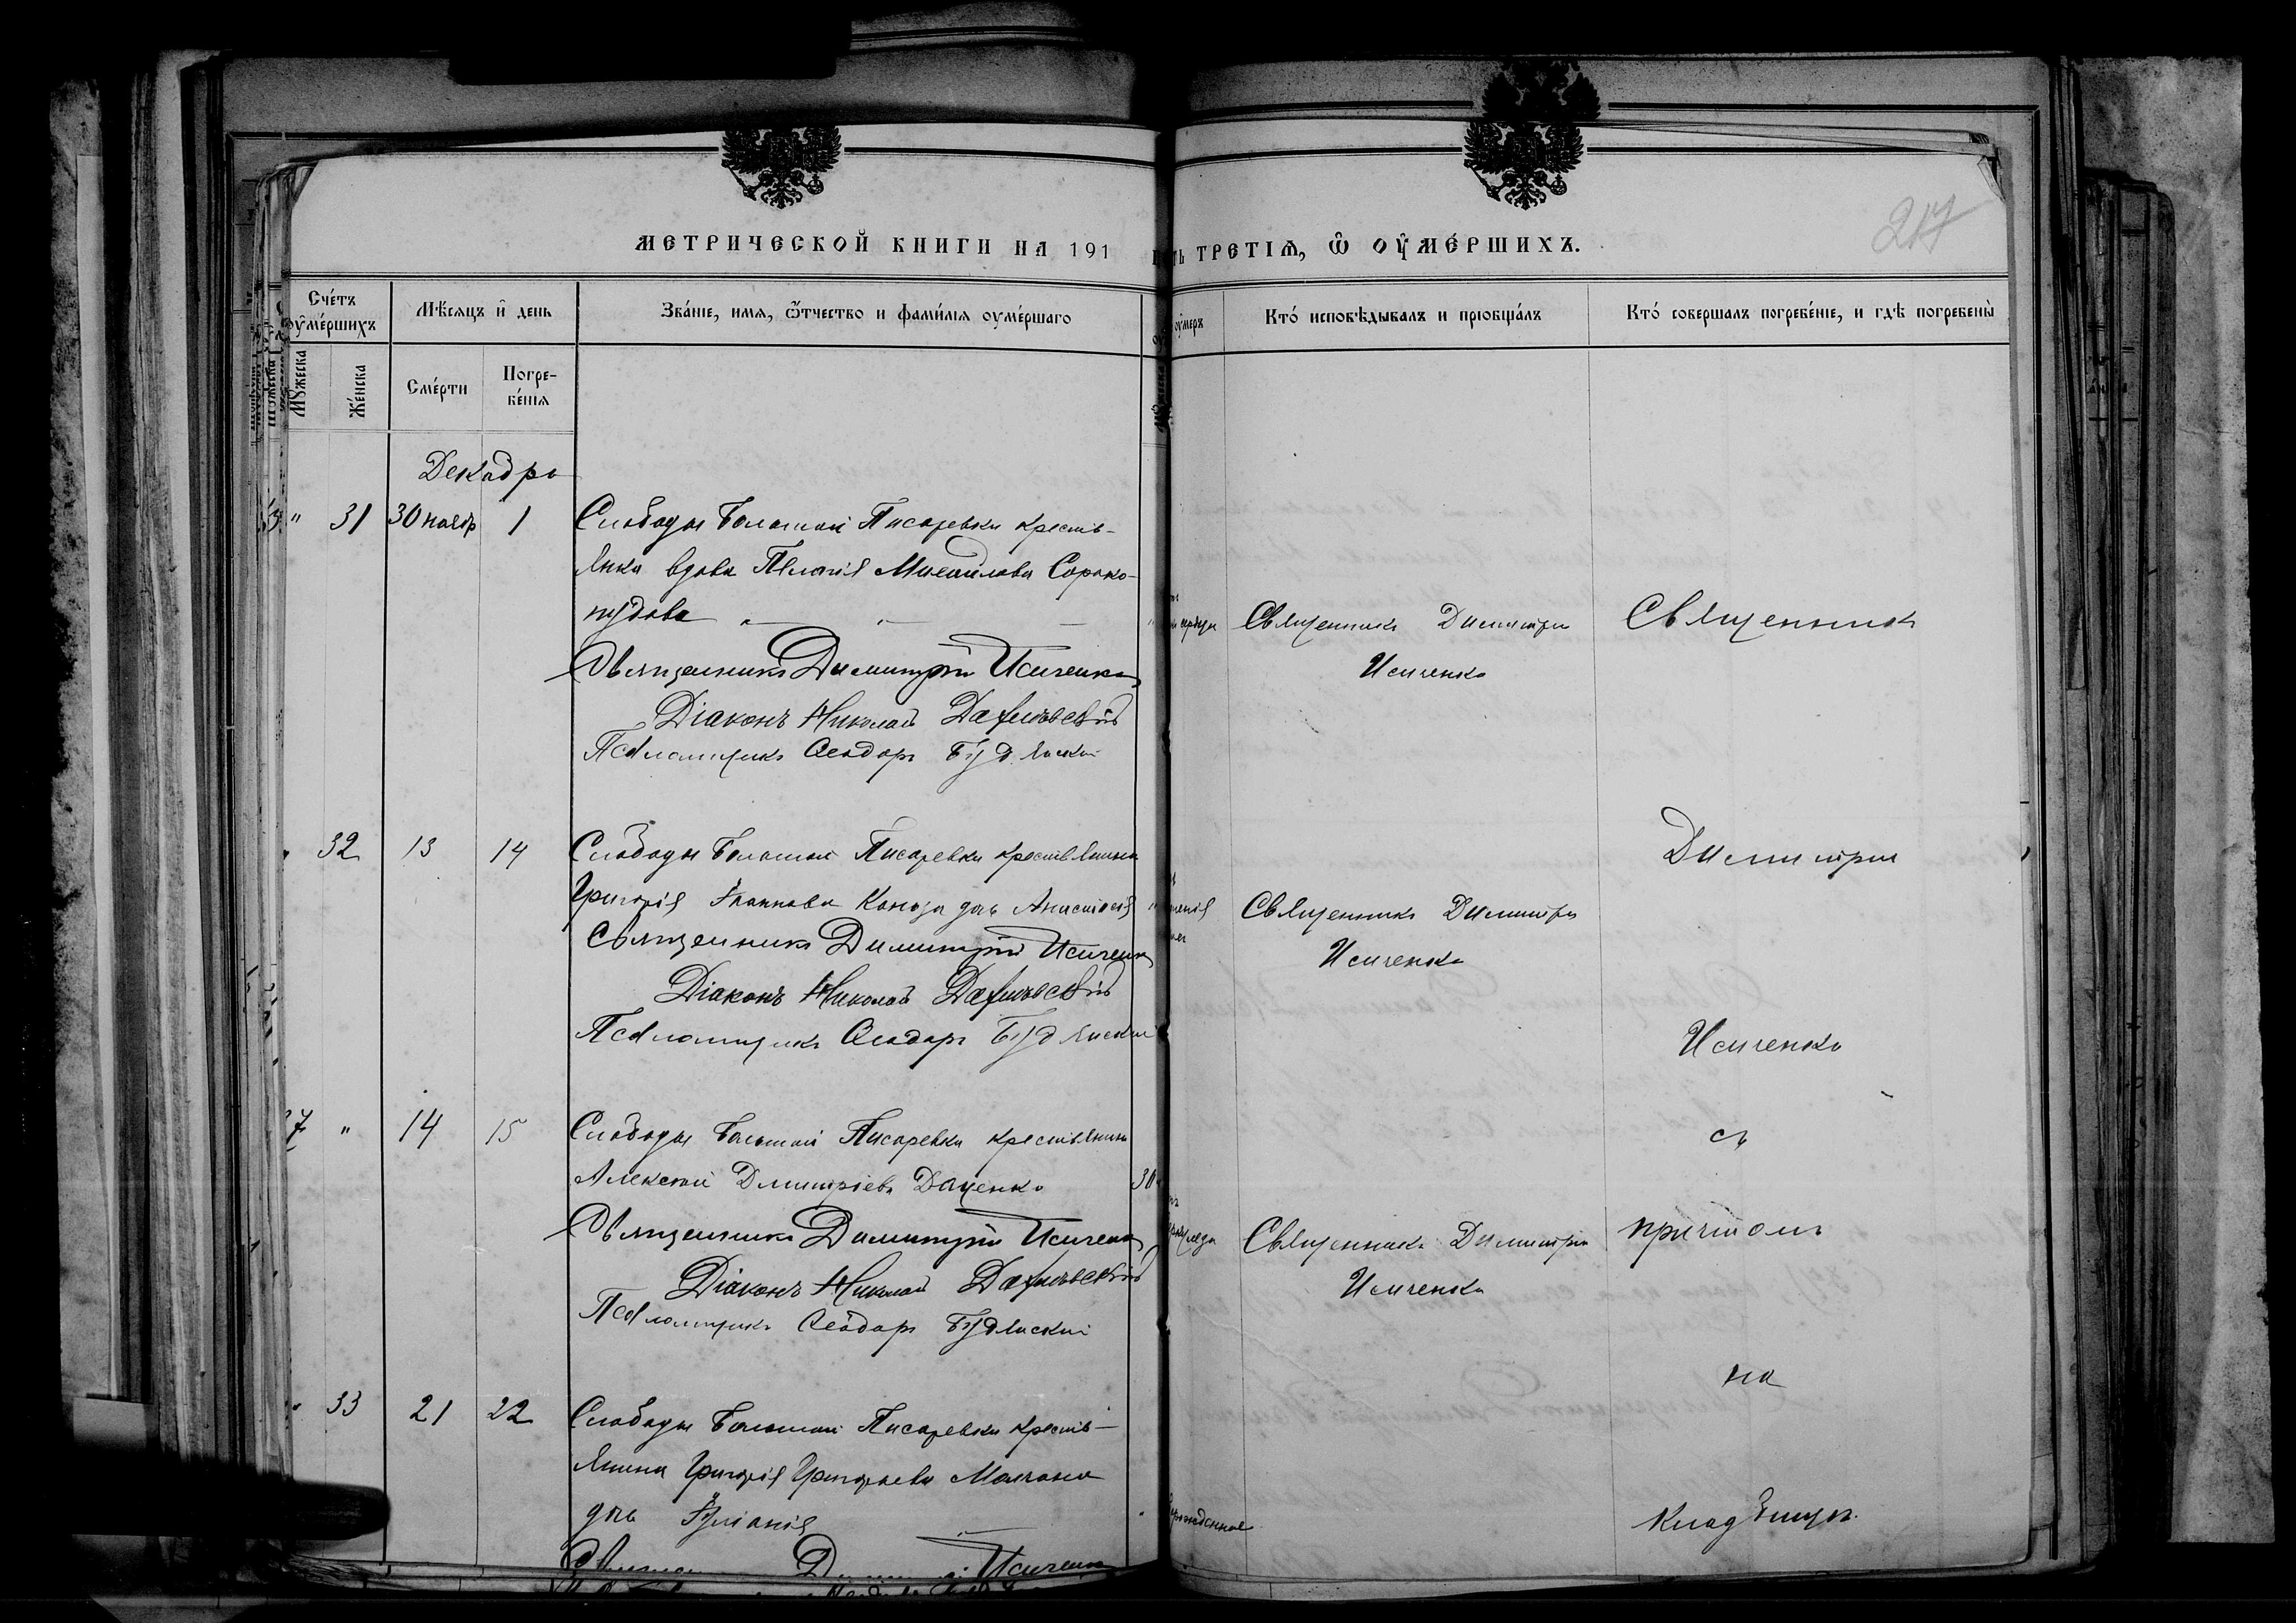 МЕТРИЧЕСКОЙ КНИГИ НА 191
ТРЕТІѦ, Ѡ ОУМЕРШИХЪ.
217
Счетъ оумершихъ
Мѣсяцъ и день
Званіе, имя, ѿчество и фамилія оумершаго
оумеръ
Кто исповѣдывалъ и пріобщалъ
Кто совершалъ погребеніе, и гдѣ погребены
Мужеска
Женска
Смерти
Погребенія
Декабрь
" 31 30 ноябр 1 Слободы Большой Писаревки кресть-
янка вдова Пелагія Михайлова Сороко-
пудова
Священникъ Димитрій Исиченко
Діаконъ Николай
Псаломщикъ Ѳеодоръ Будянскій
Священникъ Димитрій
Исиченко
Священник
32 13 14 Слободы Большой Писаревки крестьянина
Григорія Іоаннова дочь Анастасія
Священникъ Димитрій Исиченко
Діаконъ Николай
Псаломщикъ Ѳеодоръ Будянскій
Священникъ Димитрій
Исиченко
Димитрій
Исиченко
7 " 14 15 Слободы Большой Писаревки крестьянинъ
Алексѣй Димитріевъ Даценко
30
Священникъ Димитрій Исиченко
Діаконъ Николай
Псаломщикъ Ѳеодоръ Будянскій
Священникъ Димитрій
Исиченко
съ
причтомъ
на
33 21 22 Слободы Большой Писаревки кресть-
янина Григорія Григорьева Молчана
дочь Іуліанія
Исиченко
кладбищѣ.